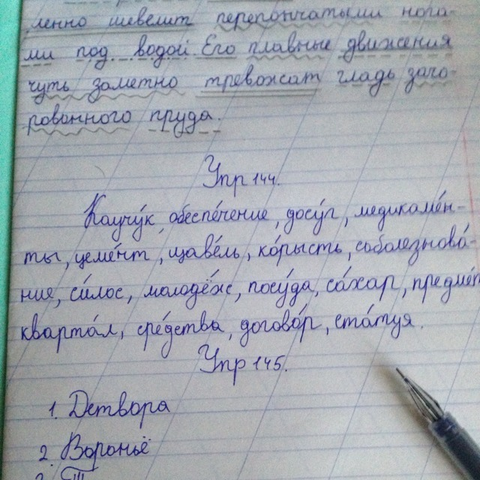 ленно шевелит перепончатыми нога-
ми под водой. Его плавные движения
чуть заметно тревожат гладь заго-
рованного пруда.
Упр 144.
Каучу́к, обеспе́чение, досу́г, медикаме́н-
ты, цеме́нт, щаве́ль, ко́рысть, соболезнова́-
ние, си́лос, молодёж, посу́да, са́хар, предме́т
кварта́л, сре́дства, догово́р, ста́туя.
Упр 145.
1. Детвора
2. Вороньё
3.